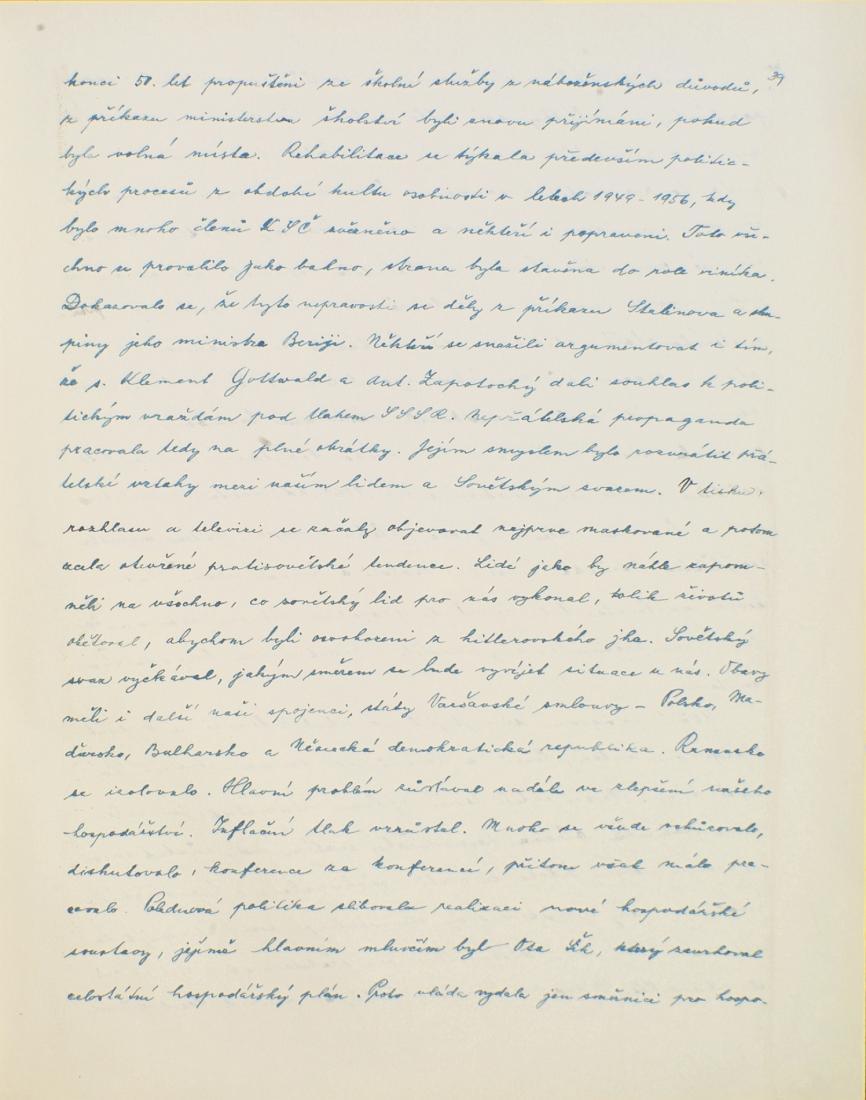 39
konci 50. let propuštěni ze školní služby z náboženských důvodů,
z příkazu ministerstva školství byli znovu přijímáni, pokud
byla volná místa. Rehabilitace se týkala především politic-
kých procesů z období kultu osobnosti v letech 1949 - 1956, kdy
bylo mnoho členů KSČ zavřeno a někteří i popraveni. Toto vše-
chno se provalilo jako bahno, strana byla stavěna do role viníka.
Dokazovalo se, že tyto nepravosti se děly z příkazu Stalinova a sku-
piny jeho ministra Beriji. Někteří se snažili argumentovat i tím,
že s. Klement Gottwald a Ant. Zápotocký dali souhlas k poli-
tickým vraždám pod tlakem SSSR. Nepřátelská propaganda
pracovala tedy na plné obrátky. Jejím smyslem bylo rozvrátit přá-
telské vztahy mezi naším lidem a Sovětským svazem. V tisku,
rozhlasu a televizi se začaly objevovat nejprve maskované a potom
zcela otevřené protisovětské tendence. Lidé jako by náhle zapom-
něli na všechno, co sovětský lid pro nás vykonal, tolik životů
obětoval, abychom byli osvobozeni z hitlerovského jha. Sovětský
svaz vyčkával, jakým směrem se bude vyvíjet situace u nás. Obavy
měli i další naši spojenci, státy Varšavské smlouvy - Polsko, Ma-
ďarsko, Bulharsko a Německá demokratická republika. Rumunsko
se izolovalo. Hlavní problém zůstával nadále ve zlepšení našeho
hospodářství. Inflační tlak vzrůstal. Mnoho se všude schůzovalo,
diskutovalo, konference za konferencí, přitom však málo pra-
covalo. Polednová politika slibovala realizaci nové hospodářské
soustavy, jejímž hlavním mluvčím byl Ota Šik, který zavrhoval
celostátní hospodářský plán. Proto vláda vydala jen směrnici pro hospo-